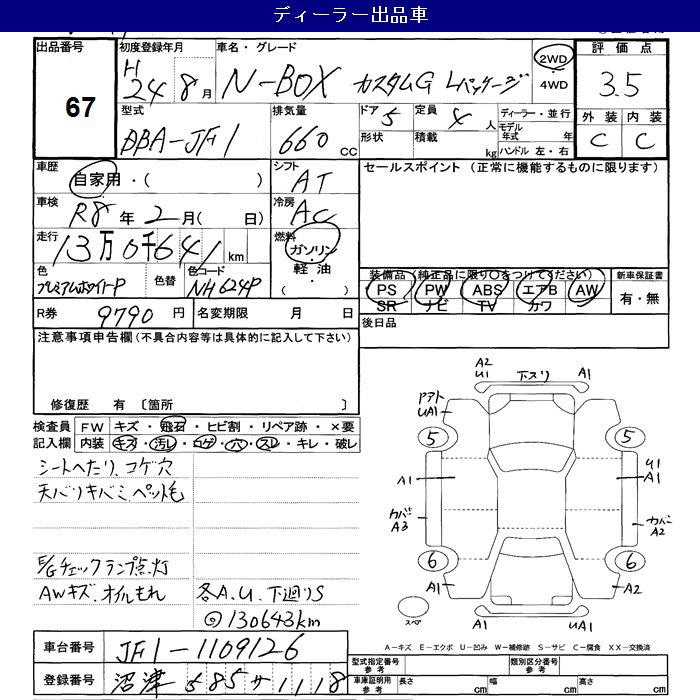 ディーラー出品車
出品番号 67
初度登録年月 H24 8月
車名・グレード N-BOX カスタムG Lパッケージ
2WD・4WD
評価点 3.5
外装 内装
C C
型式 DBA-JF1
排気量 660 CC
ドア 5
定員 4 人
形状
積載 kg
ディーラー・並行
モデル年式 年
ハンドル 左・右
車歴 自家用・( )
シフト AT
セールスポイント (正常に機能するものに限ります)
車検 R8年 2月( 日)
冷房 AC
走行 13万0千641 km
燃料 ガソリン・軽油・( )
色 プレミアムホワイトP
色替
色コード NH624P
装備品 (純正品に限り○をつけてください)
PS PW ABS エアB AW
SR ナビ TV カワ
新車保証書 有・無
R券 9790 円
名変期限 月 日
後日品
注意事項申告欄(不具合内容等は具体的に記入して下さい)
修復歴 有 〔箇所 〕
検査員記入欄
FW キズ・飛石・ヒビ割・リペア跡・×要
内装 キズ・汚レ・コゲ・穴・スレ・キレ・破レ
シートヘたり、コゲ穴
天バリキバミ、ペット毛
E/Gチェックランプ点灯
AWキズ、オイルもれ
各A.U.下廻りS
◎130643km
A2
U1
下スリ
A1
ドアト
UA1
5
5
A1
U1
A1
カバー
A3
カバー
A2
6
6
A1
A2
スペア
A1
UA1
A-キズ E-エクボ U-凹み W-補修跡 S-サビ C-腐食 XX-交換済
車台番号 JF1-1109126
登録番号 沼津 585 サ 1118
型式指定番号 参考
類別区分番号 参考
車庫証明用 参考
長さ cm
幅 cm
高さ cm